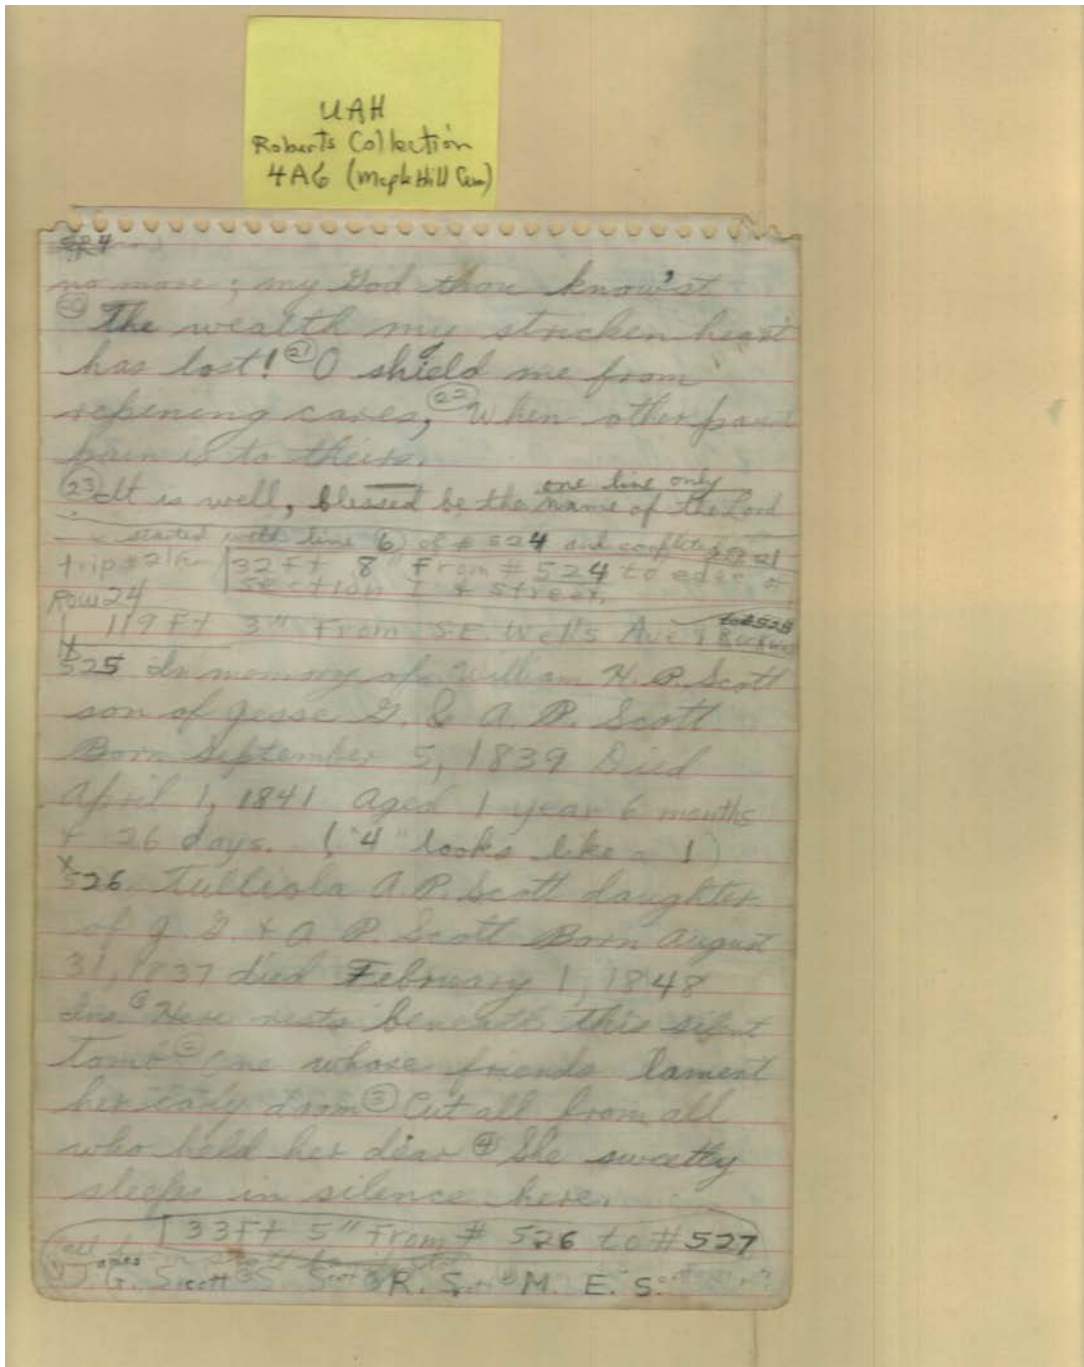 UAH
Roberts Collection
4A6 (Maple Hill Cem)
no more; my God thou know'st
⑳ The wealth my stricken heart
has lost! ㉑ O shield me from
repining cares, ㉒ When other
pain is to theirs.
one line only
㉓ It is well, blessed be the name of the Lord
started with line ⑥ of # 524 and completed
trip # 21 32 Ft 8" From # 524 to edge of
Section I & Street.
Row 24
to # 525
119 Ft 3" From S.E. Wells Ave &
525 In memory of William H. P. Scott
son of Jesse G. & A. P. Scott
Born September 5, 1839 Died
April 1, 1841 Aged 1 year 6 months
+ 26 days. ("4" looks like a 1)
x
526. Tulliola A. P. Scott daughter
of J. G. + A P. Scott Born August
31, 1837 died February 1, 1848
Ins. ① Here rests beneath this silent
Tomb ② One whose friends lament
her early doom ③ Cut all from all
who held her dear ④ She sweetly
sleeps in silence here.
33 Ft 5" From # 526 to # 527
① James
G. Scott ② S Scott ③ R. S. ④ M. E. S.